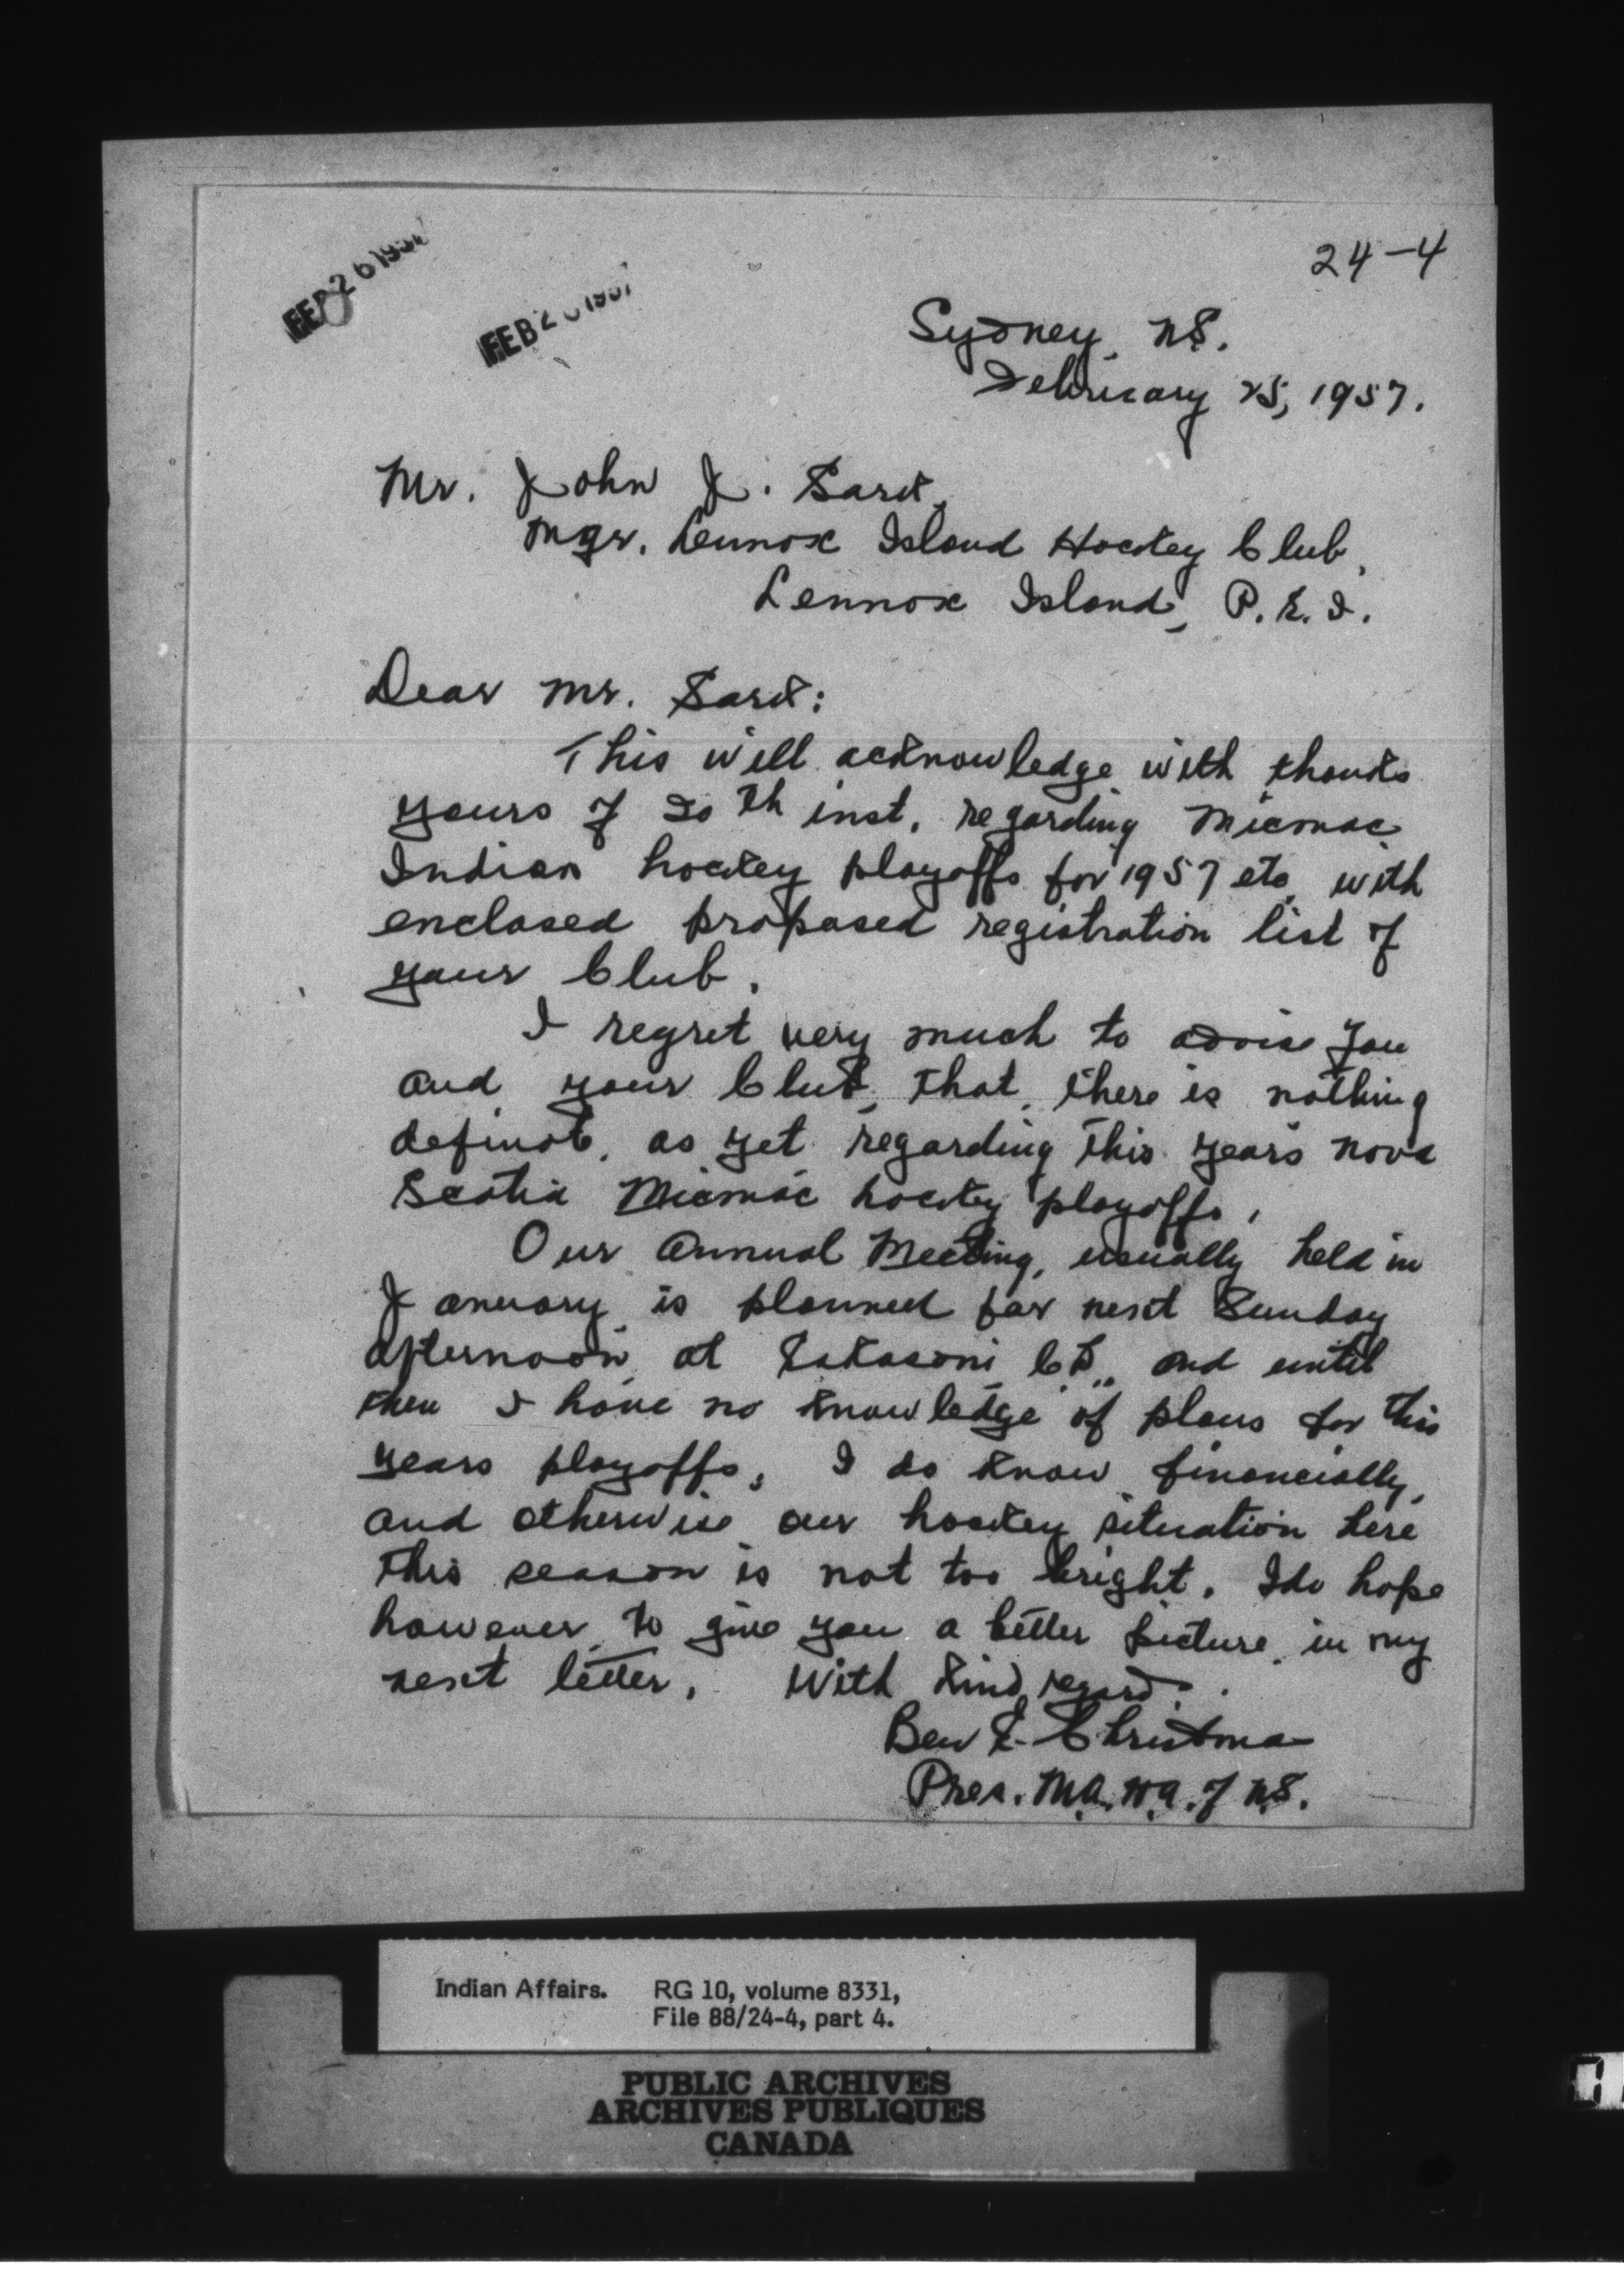 FEB 26 1957
FEB 2 1957
24-4
Sydney, N.S.
February 25, 1957.
Mr. John J. Sark,
Mgr. Lennox Island Hockey Club,
Lennox Island, P.E.I.
Dear Mr. Sark:
This will acknowledge with thanks
yours of 20th inst, regarding Micmac
Indian hockey playoffs for 1957 etc, with
enclosed proposed registration list of
your Club.
I regret very much to advise you
and your Club, that, there is nothing
definate, as yet regarding this years Nova
Scotia Micmac hockey playoffs.
Our Annual Meeting, usually held in
January, is planned for next Sunday
afternoon at Eskasoni, C.B., and until
then I have no knowledge of plans for this
years playoffs, I do know, financially,
and otherwise our hockey situation here
this season is not too bright. I do hope
however, to give you a better picture, in my
next letter. With kind regard.
Ben E. Christmas
Pres. M.A.H.A. of N.S.
Indian Affairs. RG 10, volume 8331,
File 88/24-4, part 4.
PUBLIC ARCHIVES
ARCHIVES PUBLIQUES
CANADA